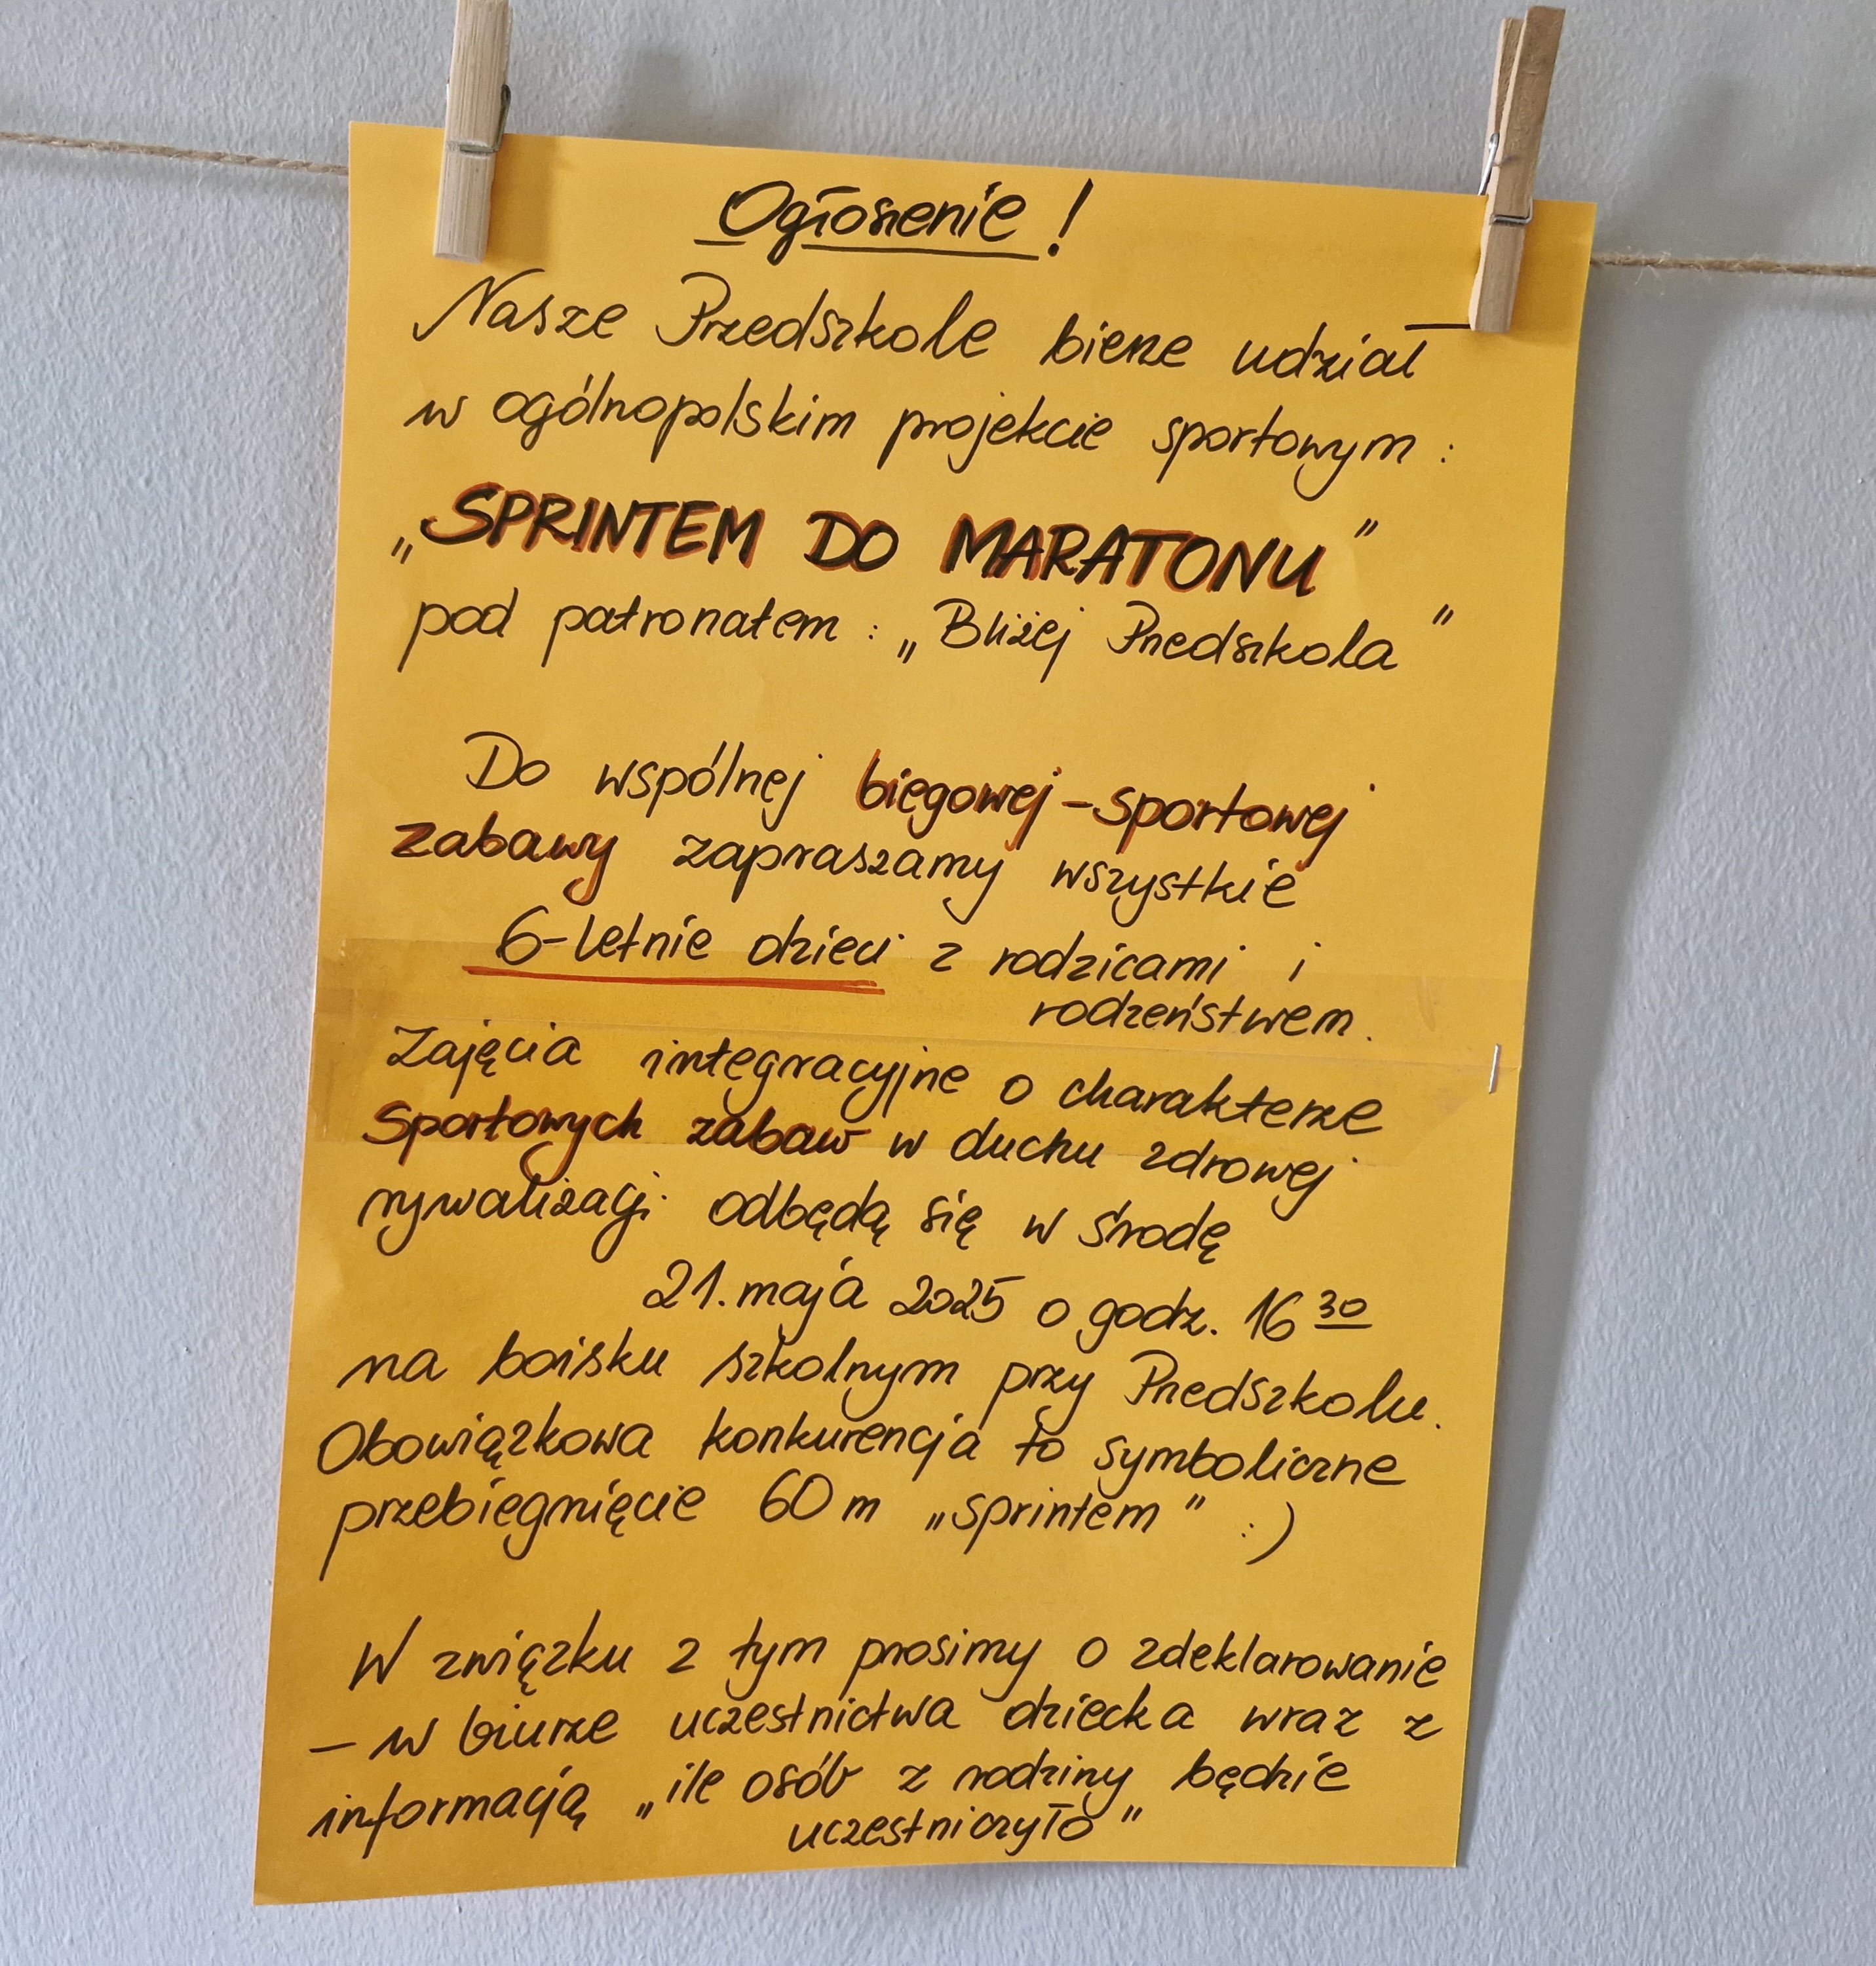 Ogłoszenie!
Nasze Przedszkole bierze udział
w ogólnopolskim projekcie sportowym:
„SPRINTEM DO MARATONU"
pod patronatem: „Bliżej Przedszkola"
Do wspólnej biegowej-sportowej
zabawy zapraszamy wszystkie
6-letnie dzieci z rodzicami i
rodzeństwem.
Zajęcia integracyjne o charakterze
sportowych zabaw w duchu zdrowej
rywalizacji odbędą się w środę
21. maja 2025 o godz. 16 30
na boisku szkolnym przy Przedszkolu.
Obowiązkowa konkurencja to symboliczne
przebiegnięcie 60 m „sprintem" :)
W związku z tym prosimy o zdeklarowanie
– w biurze uczestnictwa dziecka wraz z
informacją „ile osób z rodziny będzie
uczestniczyło"